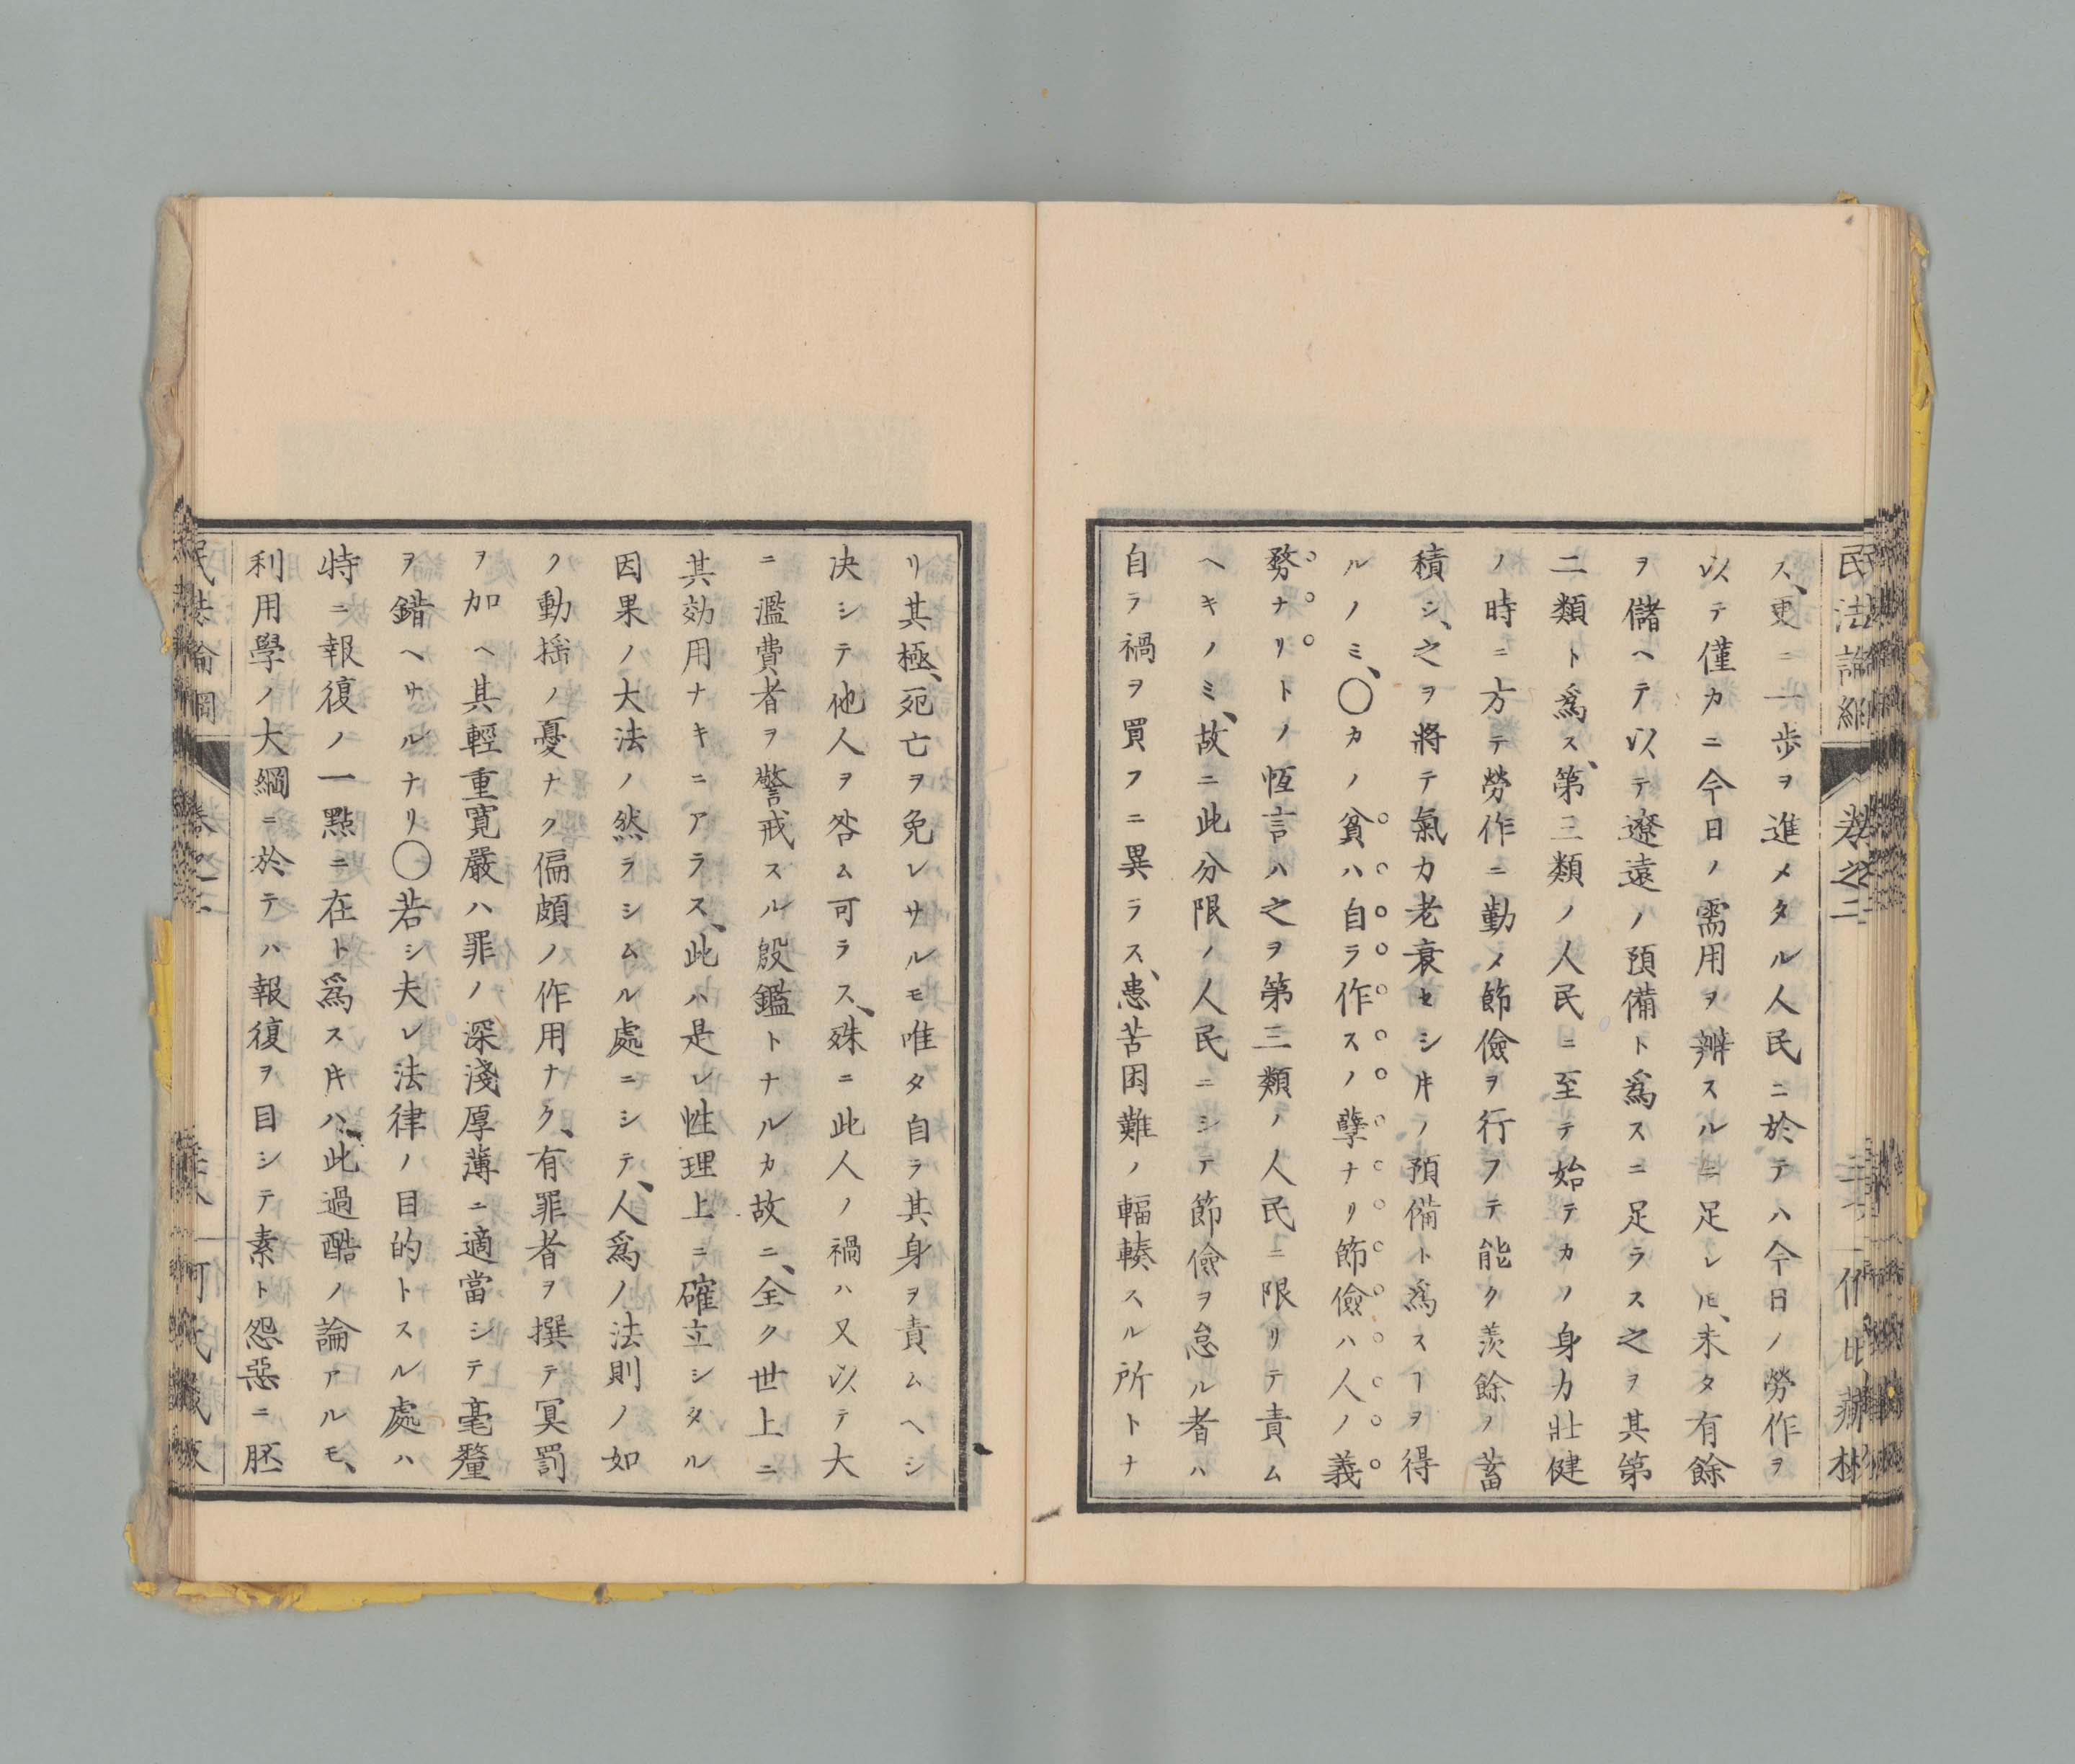 民法論綱 卷之二
ス、更ニ一歩ヲ進メタル人民ニ於テハ今日ノ勞作ヲ
以テ僅カニ今日ノ需用ヲ辨スルニ足レ𪜈、未タ有餘
ヲ儲ヘテ以テ遼遠ノ預備ト爲スニ足ラス之ヲ其第
二類ト爲ス、第三類ノ人民ニ至テ始テカノ身力壯健
ノ時ニ方テ勞作ニ勤メ節儉ヲ行フテ能ク羨餘ノ蓄
積シ、之ヲ將テ氣力老衰セシ𪜈ノ預備ト爲スヿヲ得
ルノミ、〇カノ貧ハ自ラ作スノ孽ナリ節儉ハ人ノ義
務ナリトノ恆言ハ之ヲ第三類ノ人民ニ限リテ責ム
ヘキノミ、故ニ此分限ノ人民ニシテ節儉ヲ怠ル者ハ
自ラ禍ヲ買フニ異ラス、患苦困難ノ輻輳スル所トナ
リ其極、死亡ヲ免レサルモ唯タ自ラ其身ヲ責ムヘシ
決シテ他人ヲ咎ム可ラス、殊ニ此人ノ禍ハ又以テ大
ニ濫費者ヲ警戒スル殷鑑トナルカ故ニ、全ク世上ニ
其効用ナキニアラス、此ハ是レ性理上ニ確立シタル
因果ノ大法ノ然ラシムル處ニシテ、人爲ノ法則ノ如
ク動揺ノ憂ナク偏頗ノ作用ナク、有罪者ヲ撰テ冥罰
ヲ加ヘ其輕重寛嚴ハ罪ノ深淺厚薄ニ適當シテ毫釐
ヲ錯ヘサルナリ〇若シ夫レ法律ノ目的トスル處ハ
特ニ報復ノ一點ニ在ト爲ス𪜈ハ、此過酷ノ論アルモ、
利用學ノ大綱ニ於テハ報復ヲ目シテ素ト怨惡ニ胚
民法論綱 卷之二 何氏藏版